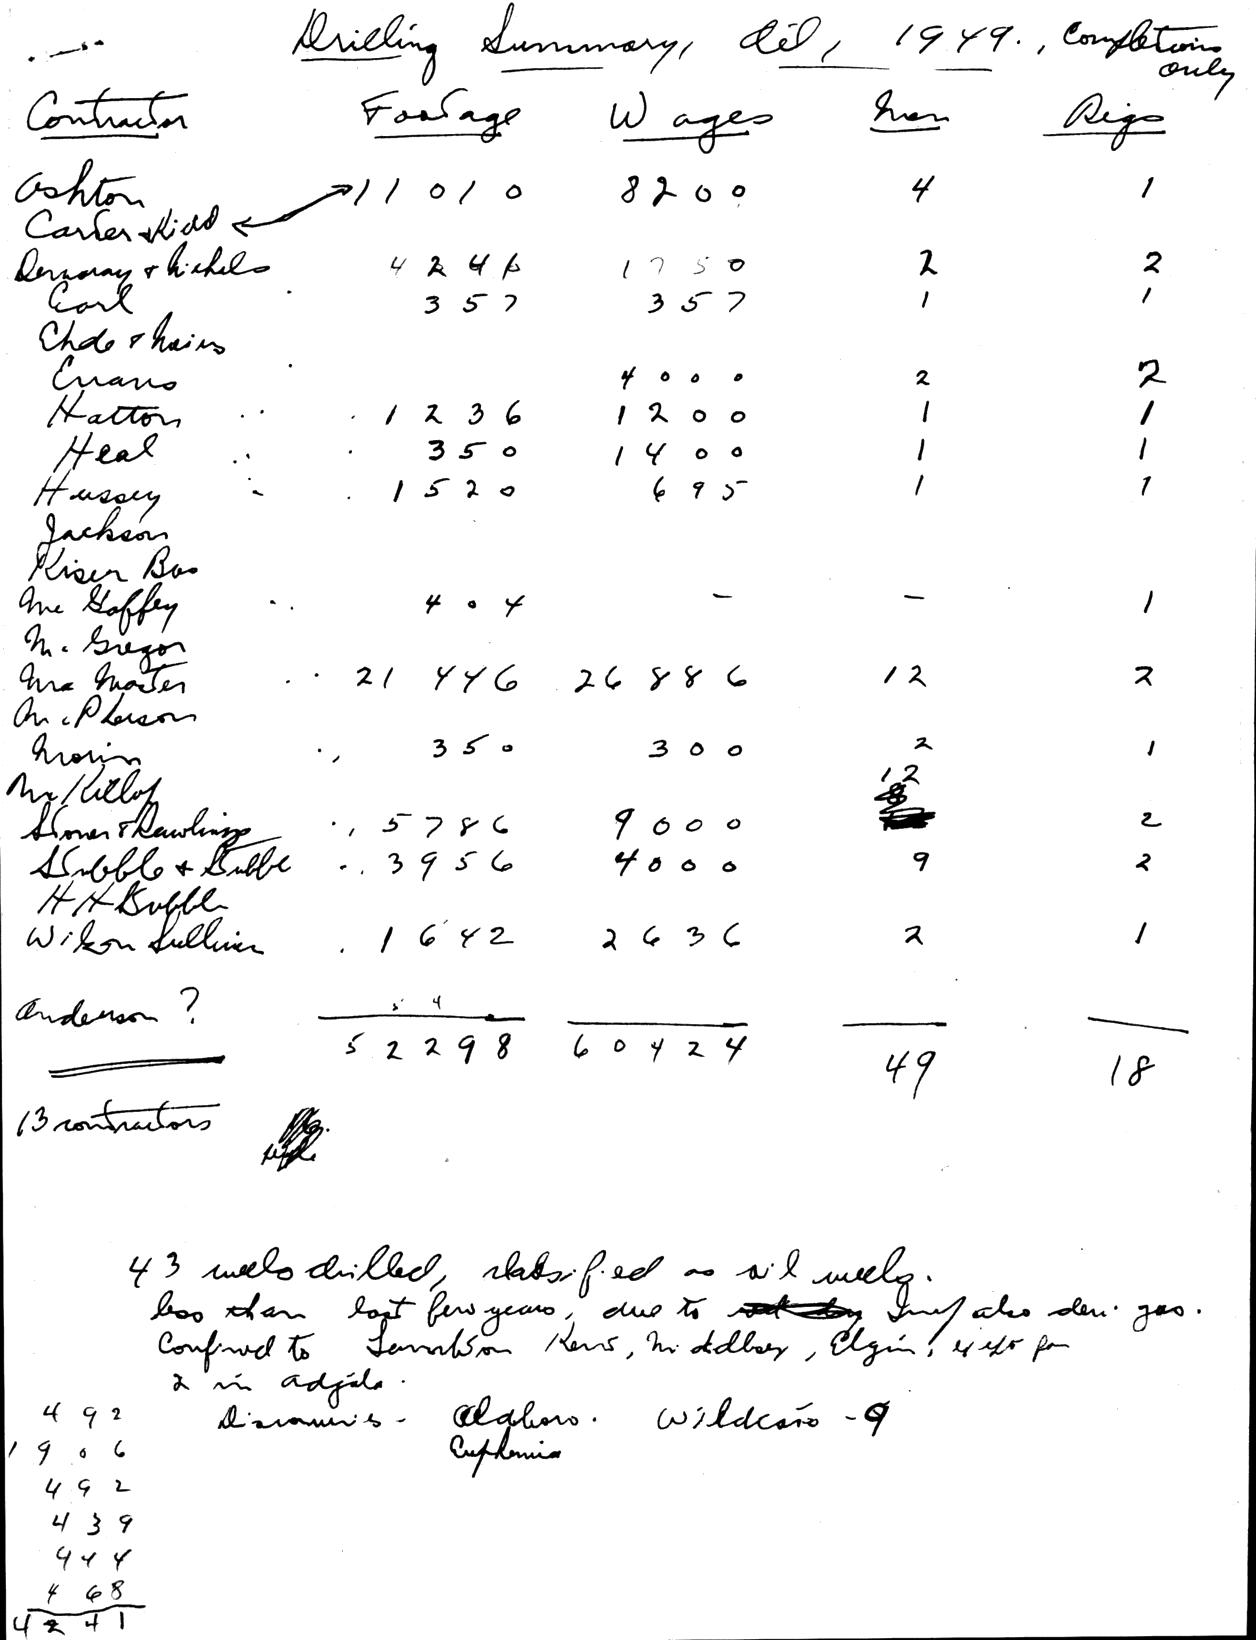 Drilling Summary, Oil, 1949., Completions
only
Contractor Footage Wages Men Rigs
Ashton 11010 8200 4 1
Carter & Kidd
Demaray & Nichols 4246 1750 2 2
Earl 357 357 1 1
Ehde &
Evans 4000 2 2
Hatton 1236 1200 1 1
Heal 350 1400 1 1
Hussey 1520 695 1 1
Jackson
Kiser Bros
McGaffey 404 – – 1
McGregor
21446 26886 12 2
McPherson
Morin 350 300 2 1
McKillop
12
Stoner & Rawlings 5786 9000 2
Stubble & Stubble 3956 4000 9 2
H H
Wilson Sullivan 1642 2636 2 1
Anderson ? 5 4
52298 60424 49 18
13 contractors
43 wells drilled, classified as oil wells.
less than last few years, due to also gas.
Confined to Lambton Kent, Middlesex, Elgin, except for
2 in Adjala.
492 Discoveries - Aldboro. Wildcats - 9
1906 Euphemia
492
439
444
468
4241